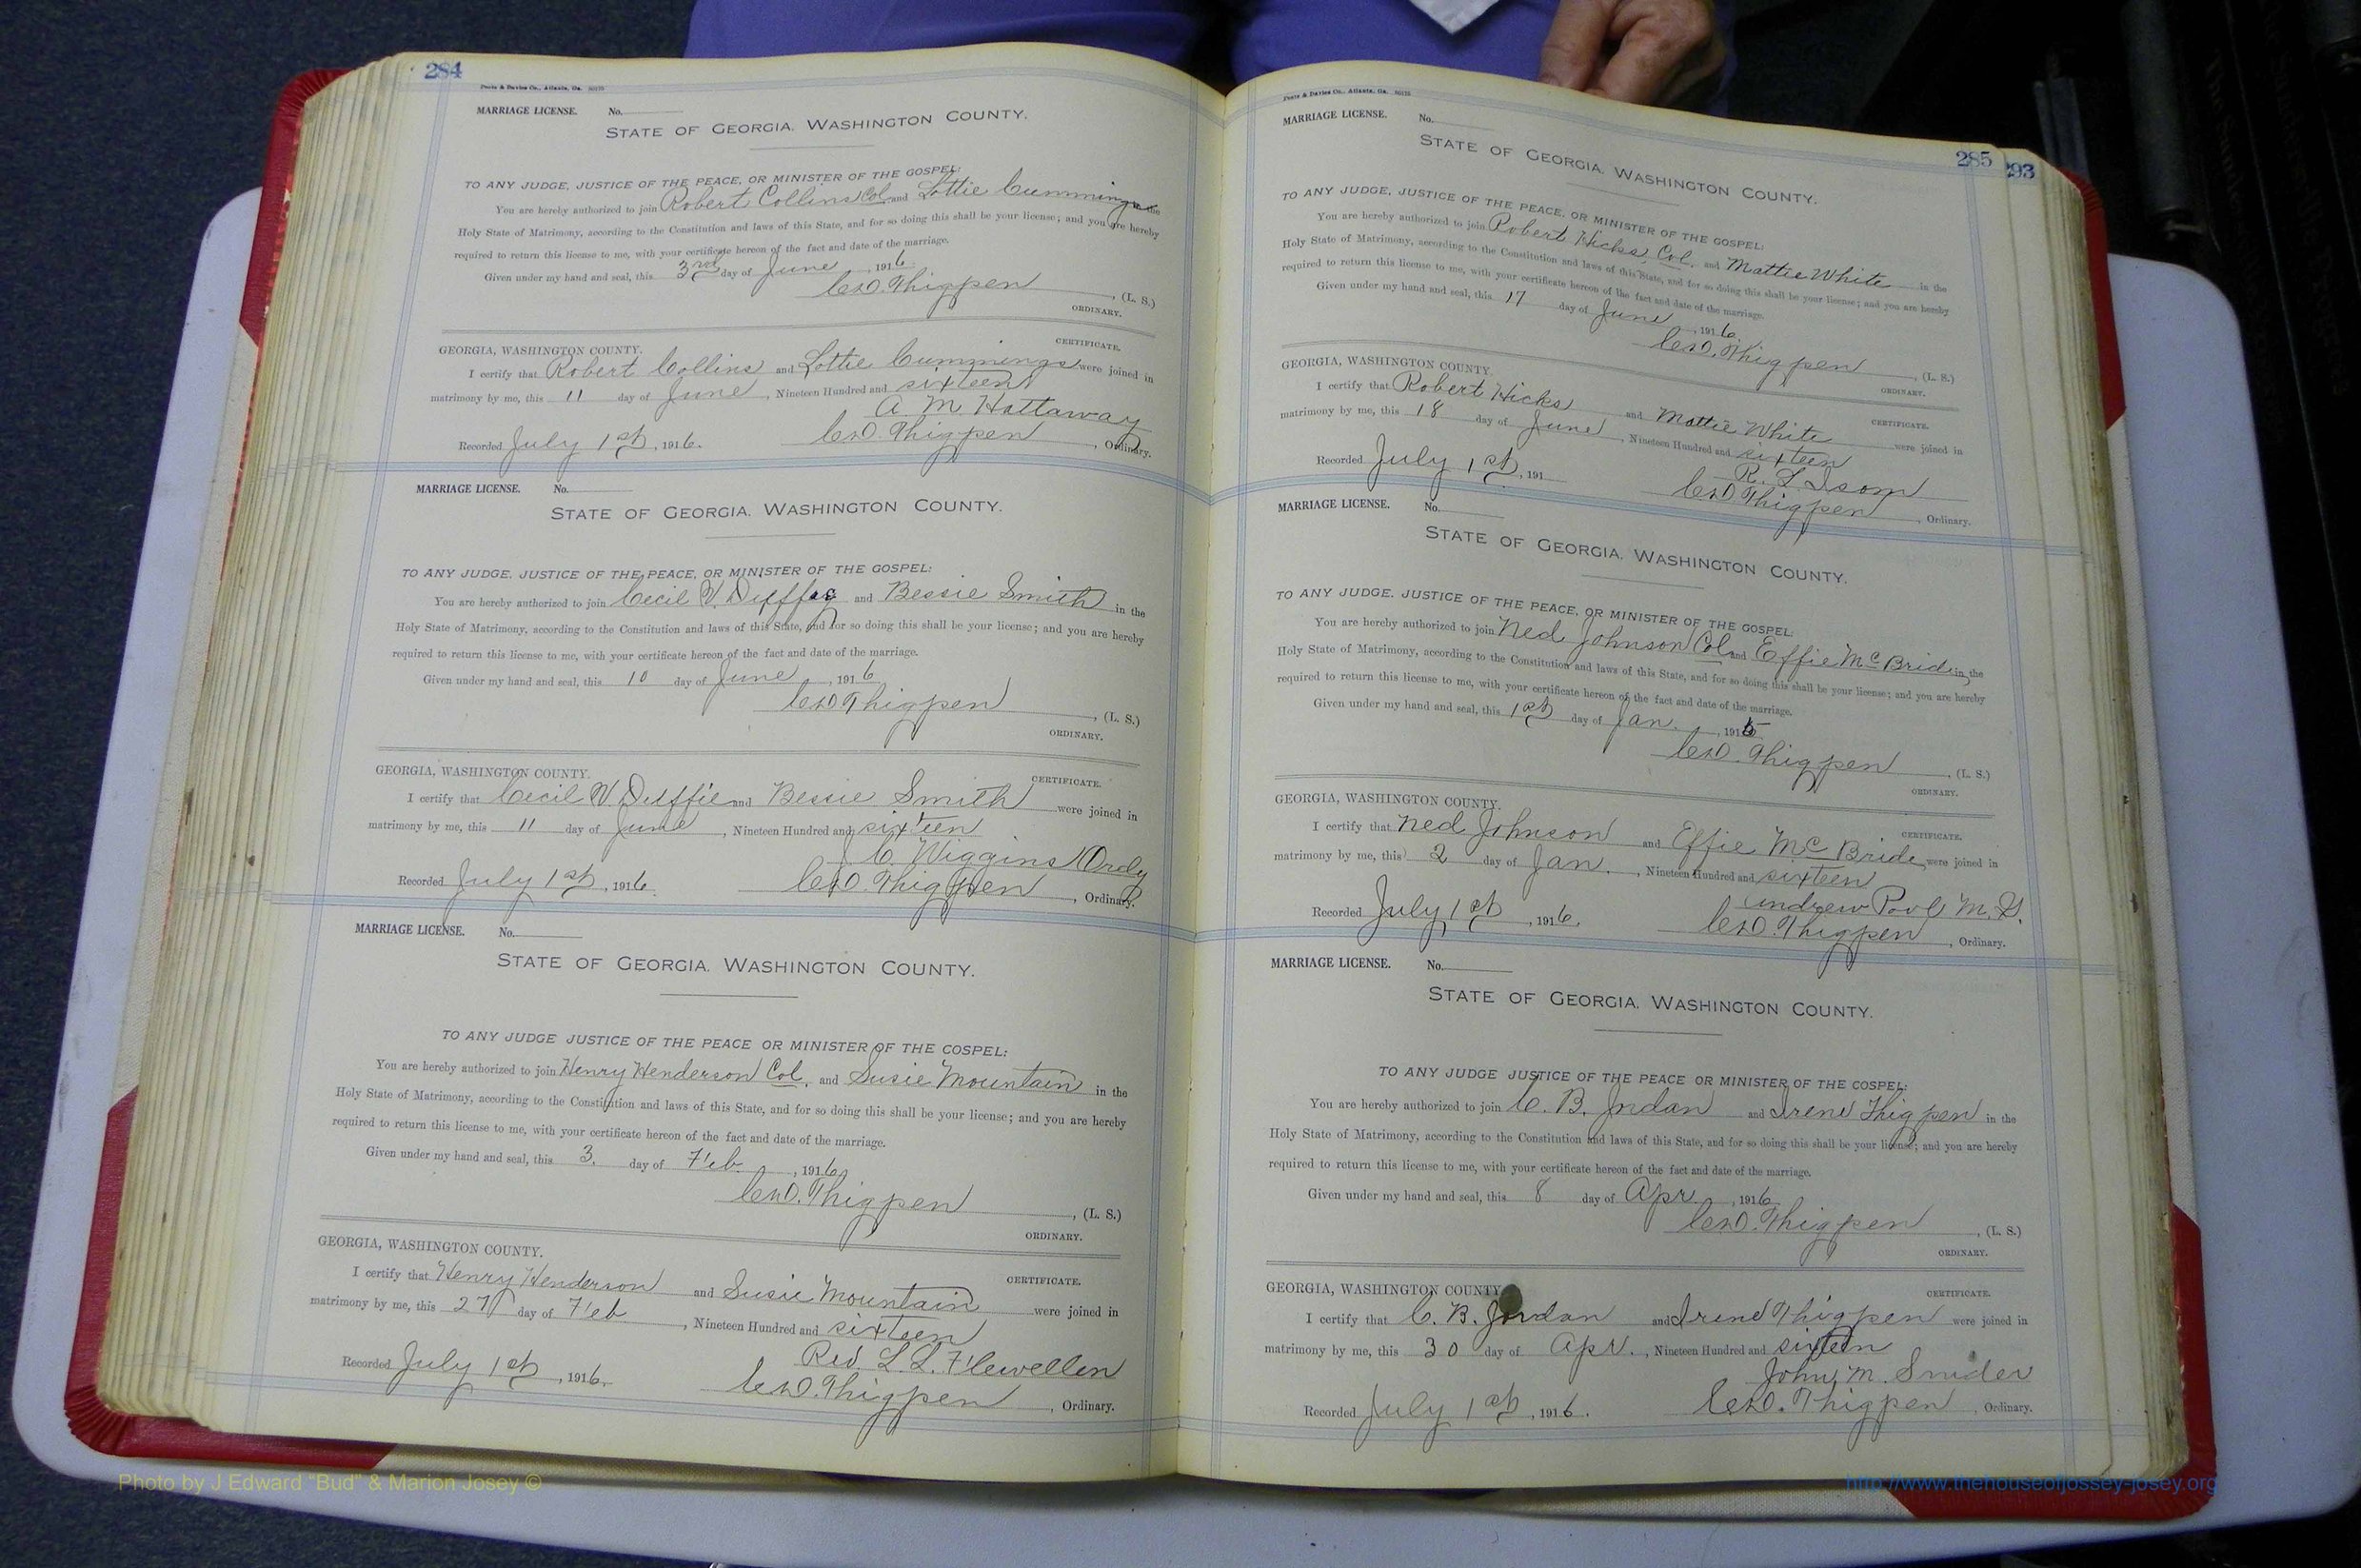 284
Foote & Davies Co., Atlanta, Ga.
MARRIAGE LICENSE. No.
STATE OF GEORGIA. WASHINGTON COUNTY.
TO ANY JUDGE, JUSTICE OF THE PEACE, OR MINISTER OF THE GOSPEL:
You are hereby authorized to join Robert Collins Col. and Lottie Cummings in the
Holy State of Matrimony, according to the Constitution and laws of this State, and for so doing this shall be your license; and you are hereby
required to return this license to me, with your certificate hereon of the fact and date of the marriage.
Given under my hand and seal, this 3rd day of June, 1916.
Thigpen, (L. S.)
ORDINARY.
CERTIFICATE.
GEORGIA, WASHINGTON COUNTY.
I certify that Robert Collins and Lottie Cummings were joined in
matrimony by me, this 11 day of June, Nineteen Hundred and sixteen
A. M. Hattaway
Recorded July 1st, 1916. Thigpen, Ordinary.
MARRIAGE LICENSE. No.
STATE OF GEORGIA. WASHINGTON COUNTY.
TO ANY JUDGE. JUSTICE OF THE PEACE, OR MINISTER OF THE GOSPEL:
You are hereby authorized to join Cecil and Bessie Smith in the
Holy State of Matrimony, according to the Constitution and laws of this State, and for so doing this shall be your license; and you are hereby
required to return this license to me, with your certificate hereon of the fact and date of the marriage.
Given under my hand and seal, this 10 day of June, 1916
Thigpen, (L. S.)
ORDINARY.
GEORGIA, WASHINGTON COUNTY. CERTIFICATE.
I certify that Cecil Duffie and Bessie Smith were joined in
matrimony by me, this 11 day of June, Nineteen Hundred and sixteen
J. C. Wiggins Ordy
Recorded July 1st, 1916. Thigpen, Ordinary.
MARRIAGE LICENSE. No.
STATE OF GEORGIA. WASHINGTON COUNTY.
TO ANY JUDGE JUSTICE OF THE PEACE OR MINISTER OF THE GOSPEL:
You are hereby authorized to join Henry Henderson Col. and Susie Mountain in the
Holy State of Matrimony, according to the Constitution and laws of this State, and for so doing this shall be your license; and you are hereby
required to return this license to me, with your certificate hereon of the fact and date of the marriage.
Given under my hand and seal, this 3. day of Feb., 1916
Thigpen, (L. S.)
ORDINARY.
GEORGIA, WASHINGTON COUNTY. CERTIFICATE.
I certify that Henry Henderson and Susie Mountain were joined in
matrimony by me, this 27 day of Feb, Nineteen Hundred and sixteen
Rev. L. L. Flewellen
Recorded July 1st, 1916. Thigpen, Ordinary.
285
293
Foote & Davies Co., Atlanta, Ga.
MARRIAGE LICENSE. No.
STATE OF GEORGIA. WASHINGTON COUNTY.
TO ANY JUDGE, JUSTICE OF THE PEACE, OR MINISTER OF THE GOSPEL:
You are hereby authorized to join Robert Hicks Col. and Mattie White in the
Holy State of Matrimony, according to the Constitution and laws of this State, and for so doing this shall be your license; and you are hereby
required to return this license to me, with your certificate hereon of the fact and date of the marriage.
Given under my hand and seal, this 17 day of June, 1916.
Thigpen, (L. S.)
ORDINARY.
GEORGIA, WASHINGTON COUNTY. CERTIFICATE.
I certify that Robert Hicks and Mattie White were joined in
matrimony by me, this 18 day of June, Nineteen Hundred and sixteen
R. L. Isom
Recorded July 1st, 191 Thigpen, Ordinary.
MARRIAGE LICENSE. No.
STATE OF GEORGIA. WASHINGTON COUNTY.
TO ANY JUDGE. JUSTICE OF THE PEACE, OR MINISTER OF THE GOSPEL:
You are hereby authorized to join Ned Johnson Col and Effie McBride in the
Holy State of Matrimony, according to the Constitution and laws of this State, and for so doing this shall be your license; and you are hereby
required to return this license to me, with your certificate hereon of the fact and date of the marriage.
Given under my hand and seal, this 1st day of Jan., 191
Thigpen, (L. S.)
ORDINARY.
GEORGIA, WASHINGTON COUNTY. CERTIFICATE.
I certify that Ned Johnson and Effie McBride were joined in
matrimony by me, this 2 day of Jan., Nineteen Hundred and sixteen
Andrew Pool M. G.
Recorded July 1st, 1916. Thigpen, Ordinary.
MARRIAGE LICENSE. No.
STATE OF GEORGIA. WASHINGTON COUNTY.
TO ANY JUDGE JUSTICE OF THE PEACE OR MINISTER OF THE GOSPEL:
You are hereby authorized to join C. B. Jordan and Irene Thigpen in the
Holy State of Matrimony, according to the Constitution and laws of this State, and for so doing this shall be your license; and you are hereby
required to return this license to me, with your certificate hereon of the fact and date of the marriage.
Given under my hand and seal, this 8 day of Apr, 1916
Thigpen, (L. S.)
ORDINARY.
GEORGIA, WASHINGTON COUNTY. CERTIFICATE.
I certify that C. B. Jordan and Irene Thigpen were joined in
matrimony by me, this 30 day of Apr., Nineteen Hundred and sixteen
John M. Snider
Recorded July 1st, 1916. Thigpen, Ordinary.
Photo by J Edward "Bud" & Marion Josey ©
http://www.thehouseofjossey-josey.org